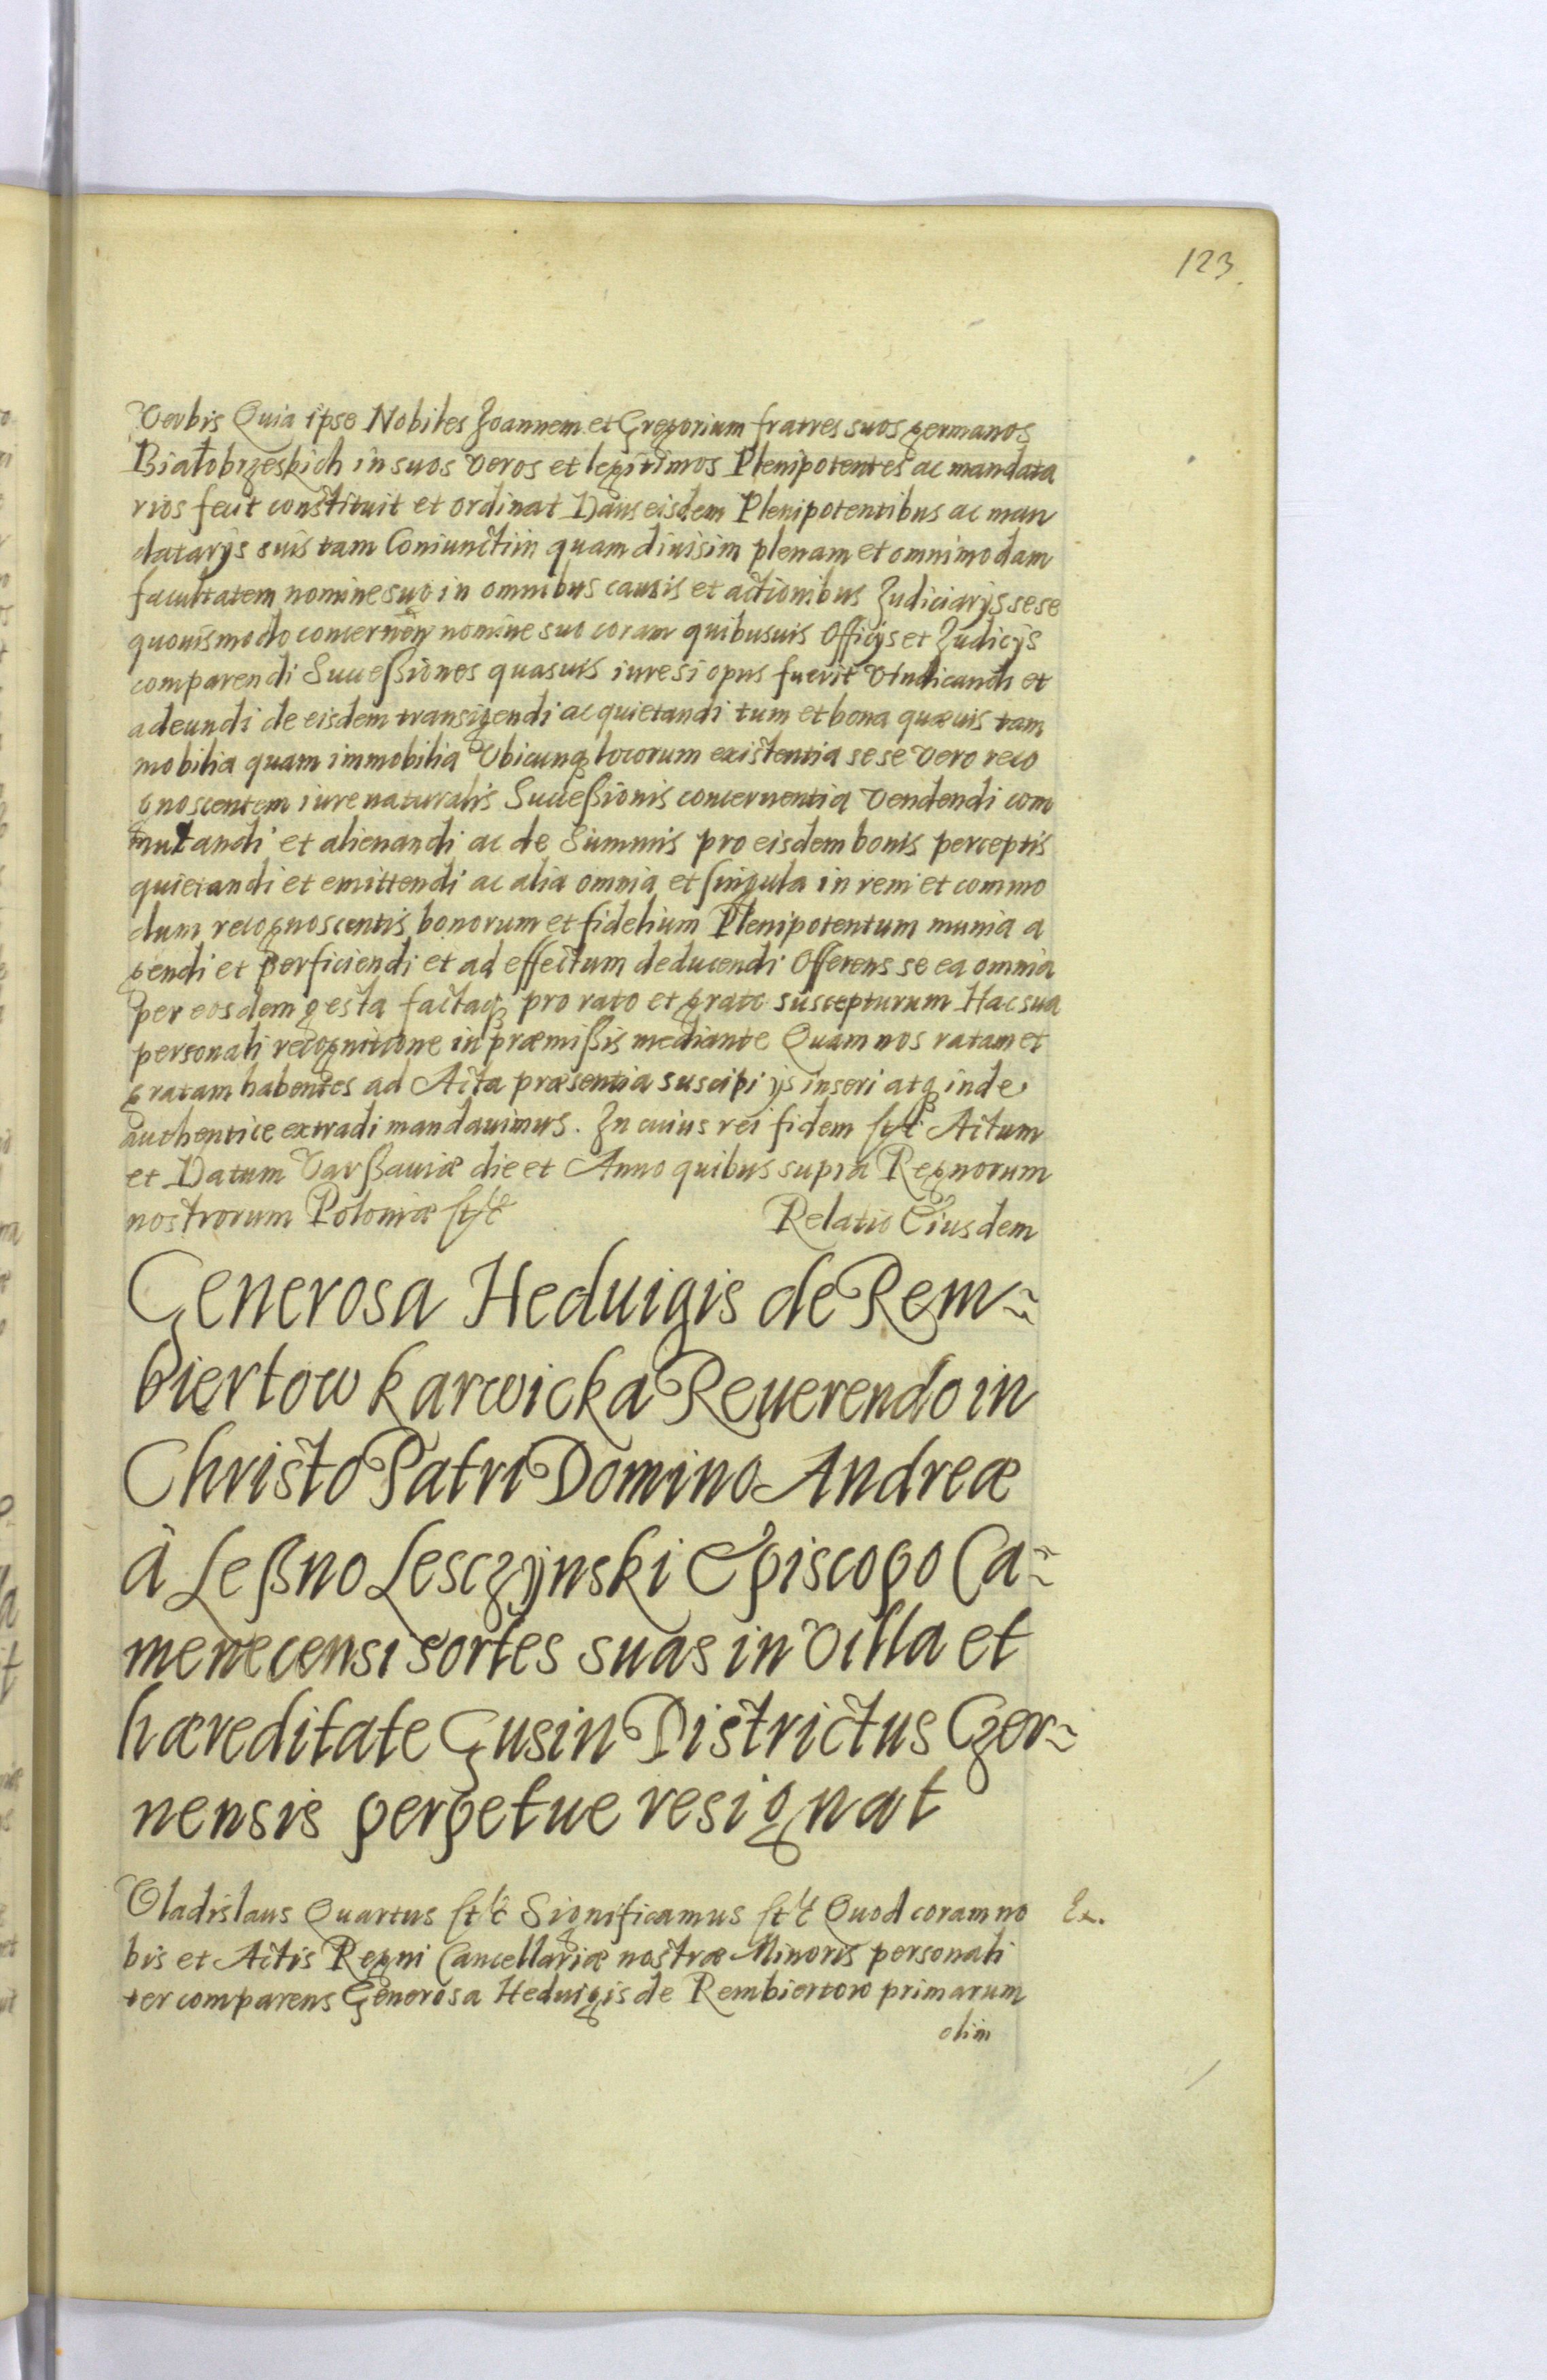 123.
Verbis Quia ipse Nobiles Joannem et Gregorium fratres suos germanos
Białobrzeskich in suos veros et legitimos Plenipotentes ac mandata
rios fecit constituit et ordinat Dans eisdem Plenipotentibus ac man
datarijs suis tam Coniunctim quam diuisim plenam et omnimodam
facultatem nomine suo in omnibus causis et actionibus Judiciarijs sese
quouismodo concernen nomine suo coram quibusuis Officijs et Judicijs
comparendi Succeßiones quasuis iure si opus fuerit vindicandi et
adeundi de eisdem transigendi ac quietandi tum et bona quæuis tam
mobilia quam immobilia Vbicunq locorum existentia sese vero reco
gnoscentem iure naturalis Succeßionis concernentia vendendi com
mutandi et alienandi ac de Summis pro eisdem bonis perceptis
quietandi et emittendi ac alia omnia et singula in rem et commo
dum recognoscentis bonorum et fidelium Plenipotentum munia a
gendi et perficiendi et ad effectum deducendi Offerens se ea omnia
per eosdem gesta factaq pro rato et grato suscepturum Hac sua
personali recognitione in præmißis mediante Quam nos ratam et
gratam habentes ad Acta præsentia suscipi ijs inseri atq inde
authentice extradi mandauimus. In cuius rei fidem etc Actum
et Datum Varßauiæ die et Anno quibus supra Regnorum
nostrorum Poloniæ etc Relatio Eiusdem
Generosa Heduigis de Rem~
biertow Karwicka Reuerendo in
Christo Patri Domino Andreæ
à Leßno Lesczÿnski Episcopo Ca~
menecensi sortes suas in Villa et
hæreditate Gusin Districtus Czer~
nensis perpetue resignat
Vladislaus Quartus etc Significamus etc Quod coram no Ex.
bis et Actis Regni Cancellariæ nostræ Minoris personali
ter comparens Generosa Heduigis de Rembiertow primarum
olim